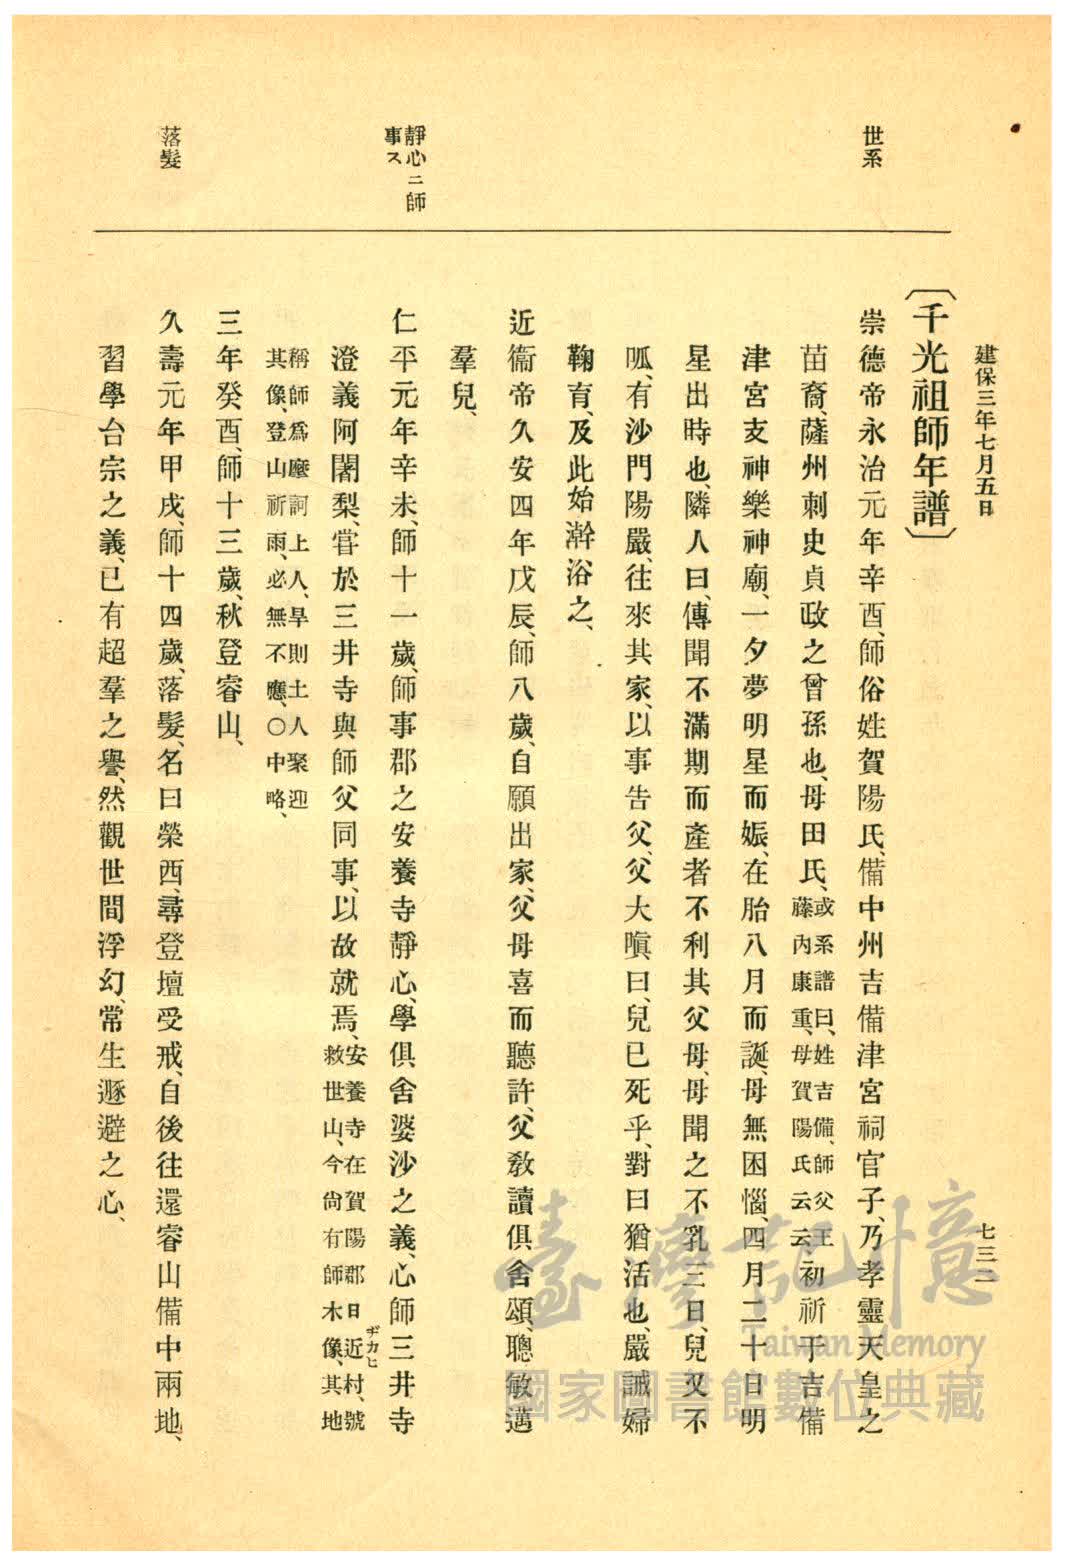 建保三年七月五日
七三二
世系
靜心ニ師
事ス
落髮
〔千光祖師年譜〕
崇德帝永治元年辛酉、師俗姓賀陽氏、備中州吉備津宮祠官子、乃孝靈天皇之
苗裔、薩州刺史貞政之曾孫也、母田氏、或系譜曰、姓吉備、師父王藤內康重、母賀陽氏云云、初祈于吉備
津宮支神樂神廟、一夕夢明星而娠、在胎八月而誕、母無困惱、四月二十日明
星出時也、隣人曰、傳聞不滿期而產者不利其父母、母聞之不乳三日、兒又不
呱、有沙門陽嚴、往來其家、以事告父、父大嗔曰、兒已死乎、對曰猶活也、嚴誡婦
鞠育、及此始澣浴之、
近衞帝久安四年戊辰、師八歲、自願出家、父母喜而聽許、父敎讀俱舍頌、聰敏邁
羣兒、
仁平元年辛未、師十一歲、師事郡之安養寺靜心、學俱舍婆沙之義、心師三井寺
澄義阿闍梨、甞於三井寺與師父同事、以故就焉、安養寺在賀陽郡日近村、號救世山、今尙有師木像、其地
ヂカヒ
稱師爲廰訶上人、旱則土人聚迎
其像、登山祈雨、必無不應、〇中略、
三年癸酉、師十三歲、秋登睿山、
久壽元年甲戌、師十四歲、落髮、名曰榮西、尋登壇受戒、自後往還睿山備中兩地、
習學台宗之義、已有超羣之譽、然觀世間浮幻、常生遯避之心、
臺灣記憶
Taiwan Memory
國家圖書館數位典藏